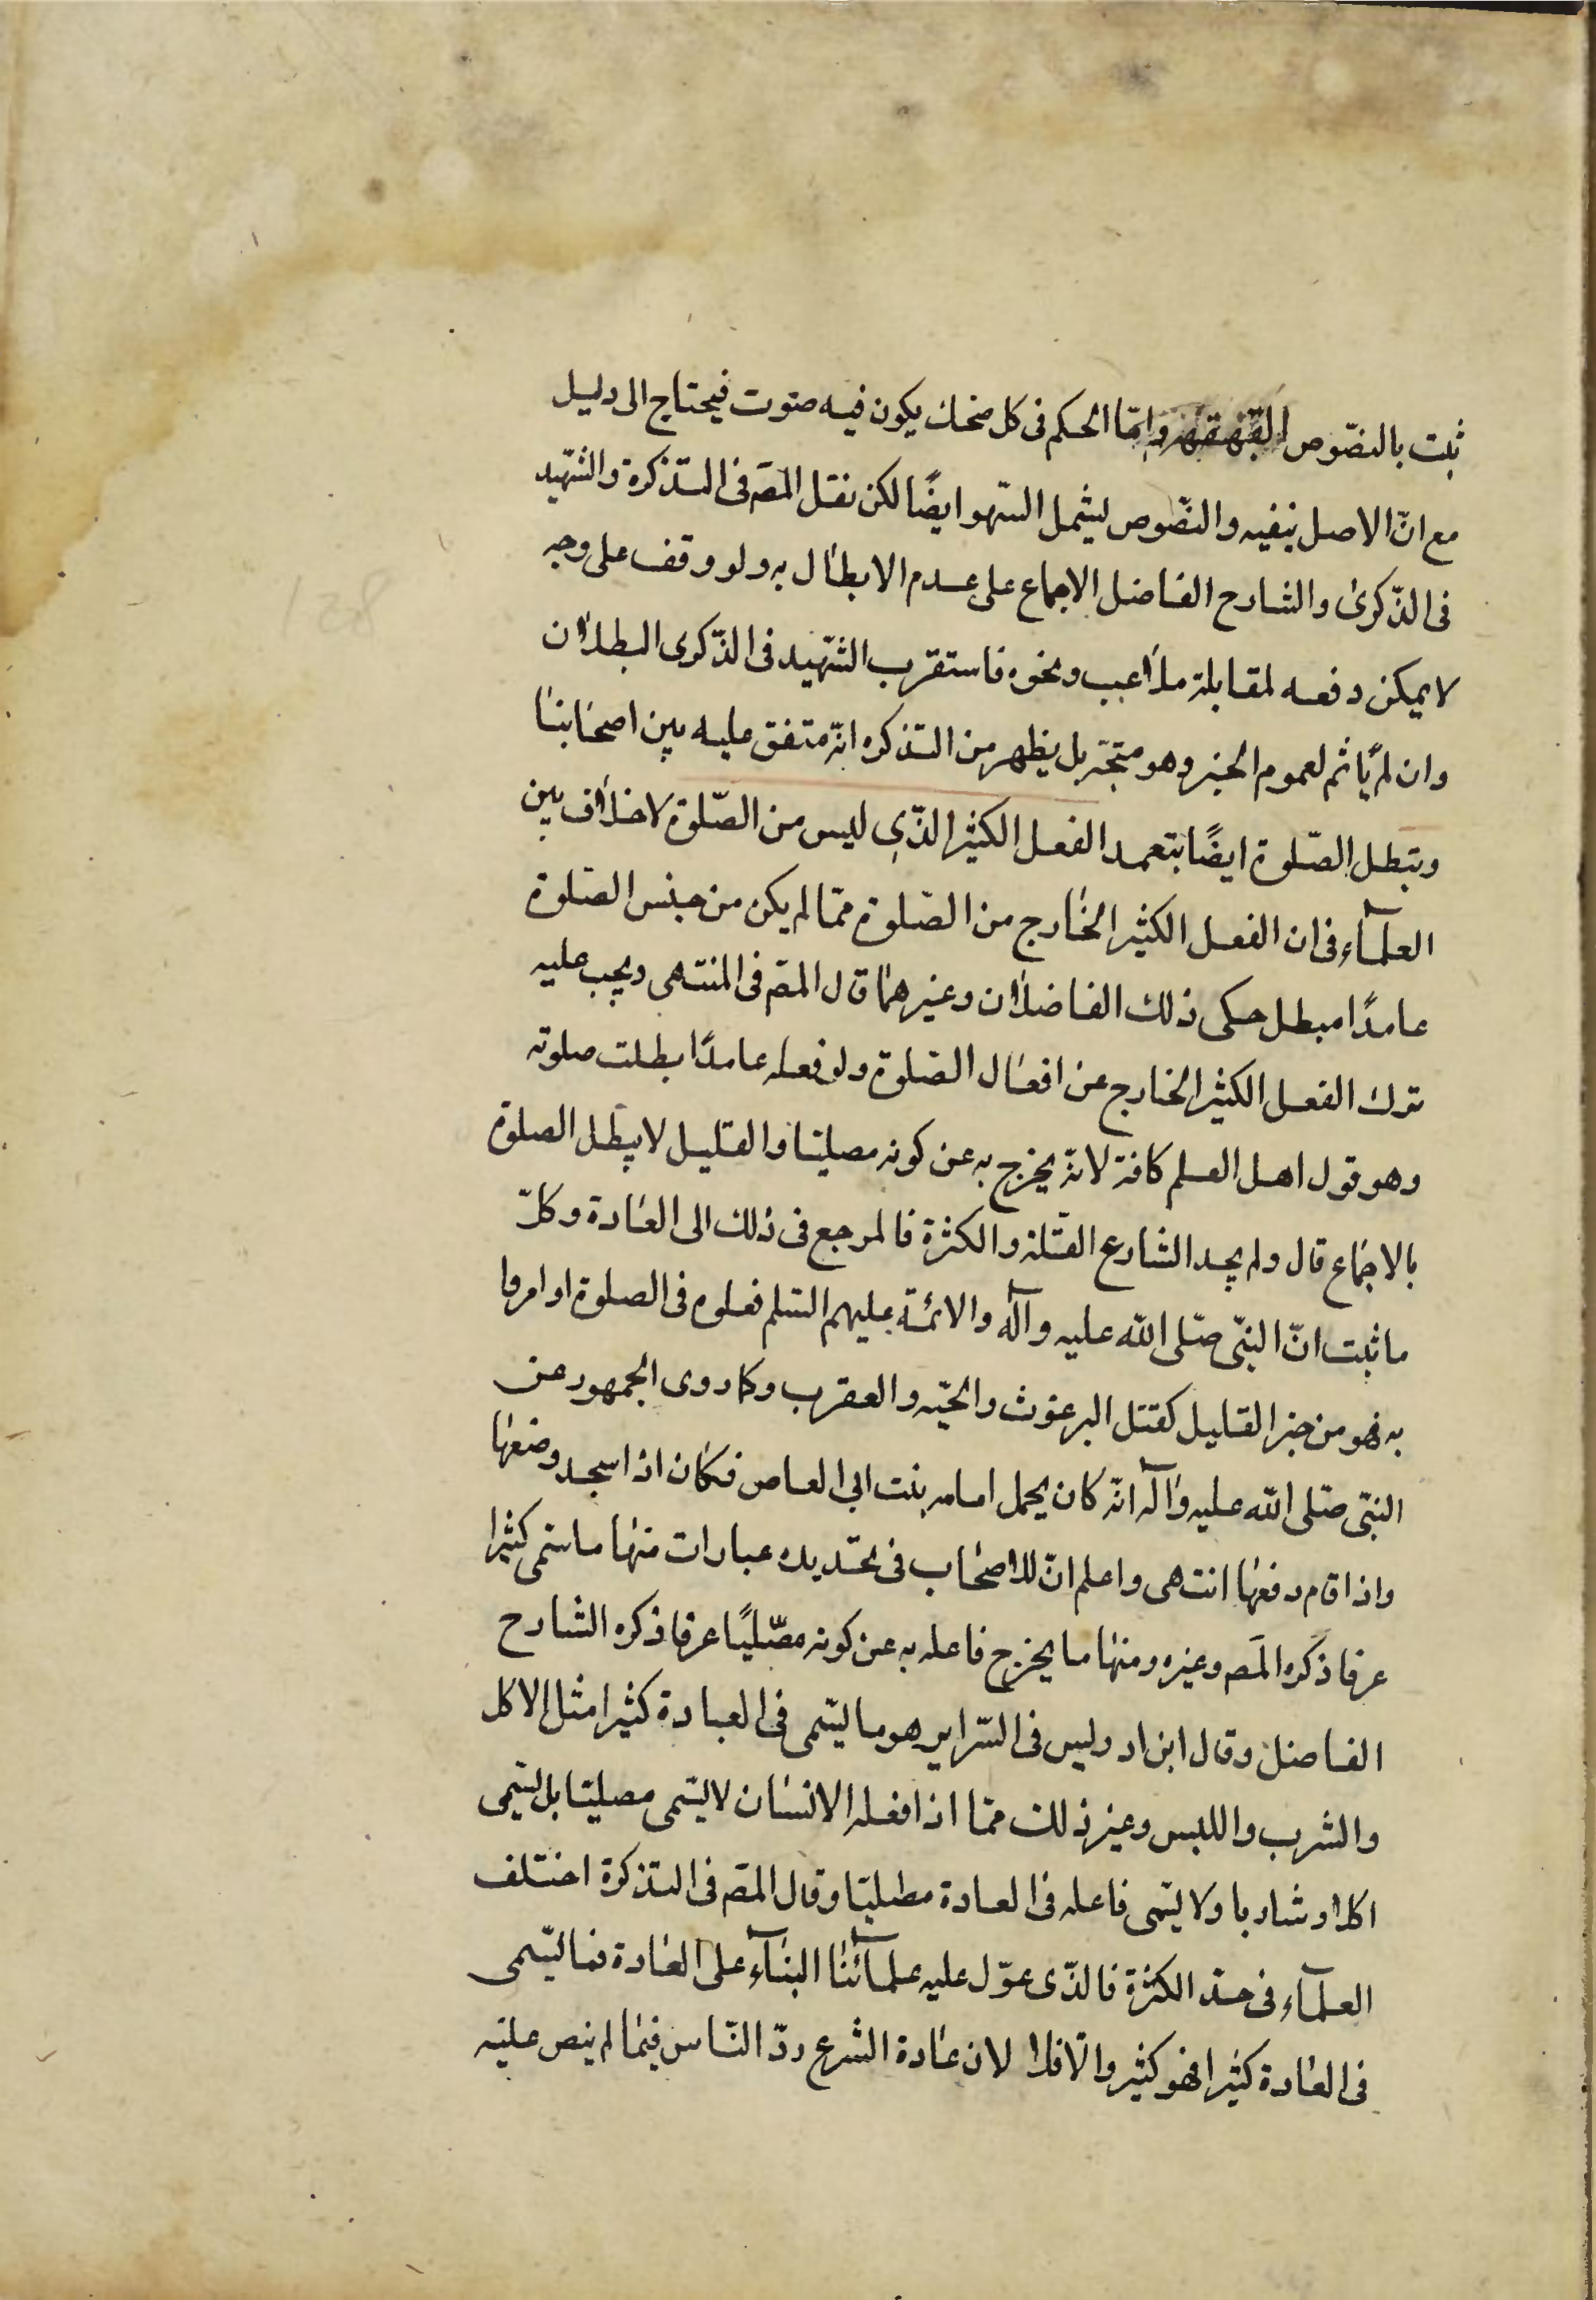 ثبت بالنصّوص القهقهة وامّا الحكم فى كل ضحك يكون فيه صوت فيحتاج الى دليل
مع انّ الاصل ينفيه والنصّوص ليشمل السّهو ايضًا لكن نقل المصَ فى التذكرة والشّهيد
فى الذّكرى والشارح الفاضل الاجماع على عدم الابطال به ولو وقف على وجه
لا يمكن دفعه لمقابلة ملاعب ونحوه فاستقرب الشّهيد فى الذّكرى البطلان
وان لم يأثم لعموم الخبر وهو متجّه بل يظهر من التذكره انّه متفق عليه بين اصحابنا
وبتطل الصّلوة ايضًا بتعمد الفعل الكثير الذّى ليس من الصّلوة لا خلاف بين
العلمآء فى ان الفعل الكثير الخارج من الصّلوة ممّا لم يكن من جنس الصّلوة
عامدًا مبطل حكى ذلك الفاضلان وغيرهما قال المصَ فى المنتهى ويجب عليه
ترك الفعل الكثير الخارج عن افعال الصّلوة ولو فعله عامدًا بطلت صلوته
وهو قول اهل العلم كافة لانّه يخرج به عن كونه مصليّا والقليل لا يبطل الصلوة
بالاجماع قال ولم يحد الشارع القلّة والكثرة فالمرجع فى ذلك الى العادة وكلّ
ما ثبت انّ النبّى صلّى الله عليه وآله والائمّة عليهم السّلم فعلوه فى الصلوة او امروا
به فهو من حيز القليل كقتل البرغوث والحيّه والعقرب وكما روى الجمهور عن
النبّى صلّى الله عليه وآله انّه كان يحمل امامه بنت ابى العاص فكان اذا سجد وضعها
واذا قام رفعها انتهى واعلم انّ للاصحاب فى تحديده عبارات منها ما سمى كثيرا
عرفا ذكره المصَ وغيره ومنها ما يخرج فاعله به عن كونه مصّليًا عرفا ذكره الشارح
الفاضل وقال ابن ادريس فى السّراير هو ما يسّمى فى العبادة كثيرا مثل الاكل
والشرب واللبس وغير ذلك ممّا اذا فعله الانسان لا يسّمى مصليّا بل يسّمى
اكلا وشاربا ولا يسّمى فاعله فى العادة مصليّا وقال المصَ فى التذكرة اختلف
العلمآء فى حدّ الكثرة فالذّى عوّل عليه علمآئنا البنآء على العادة فما يسّمى
فى العادة كثيرا فهو كثير والّا فلا لان عادة الشرع ردّ النّاس فيما لم ينص عليه